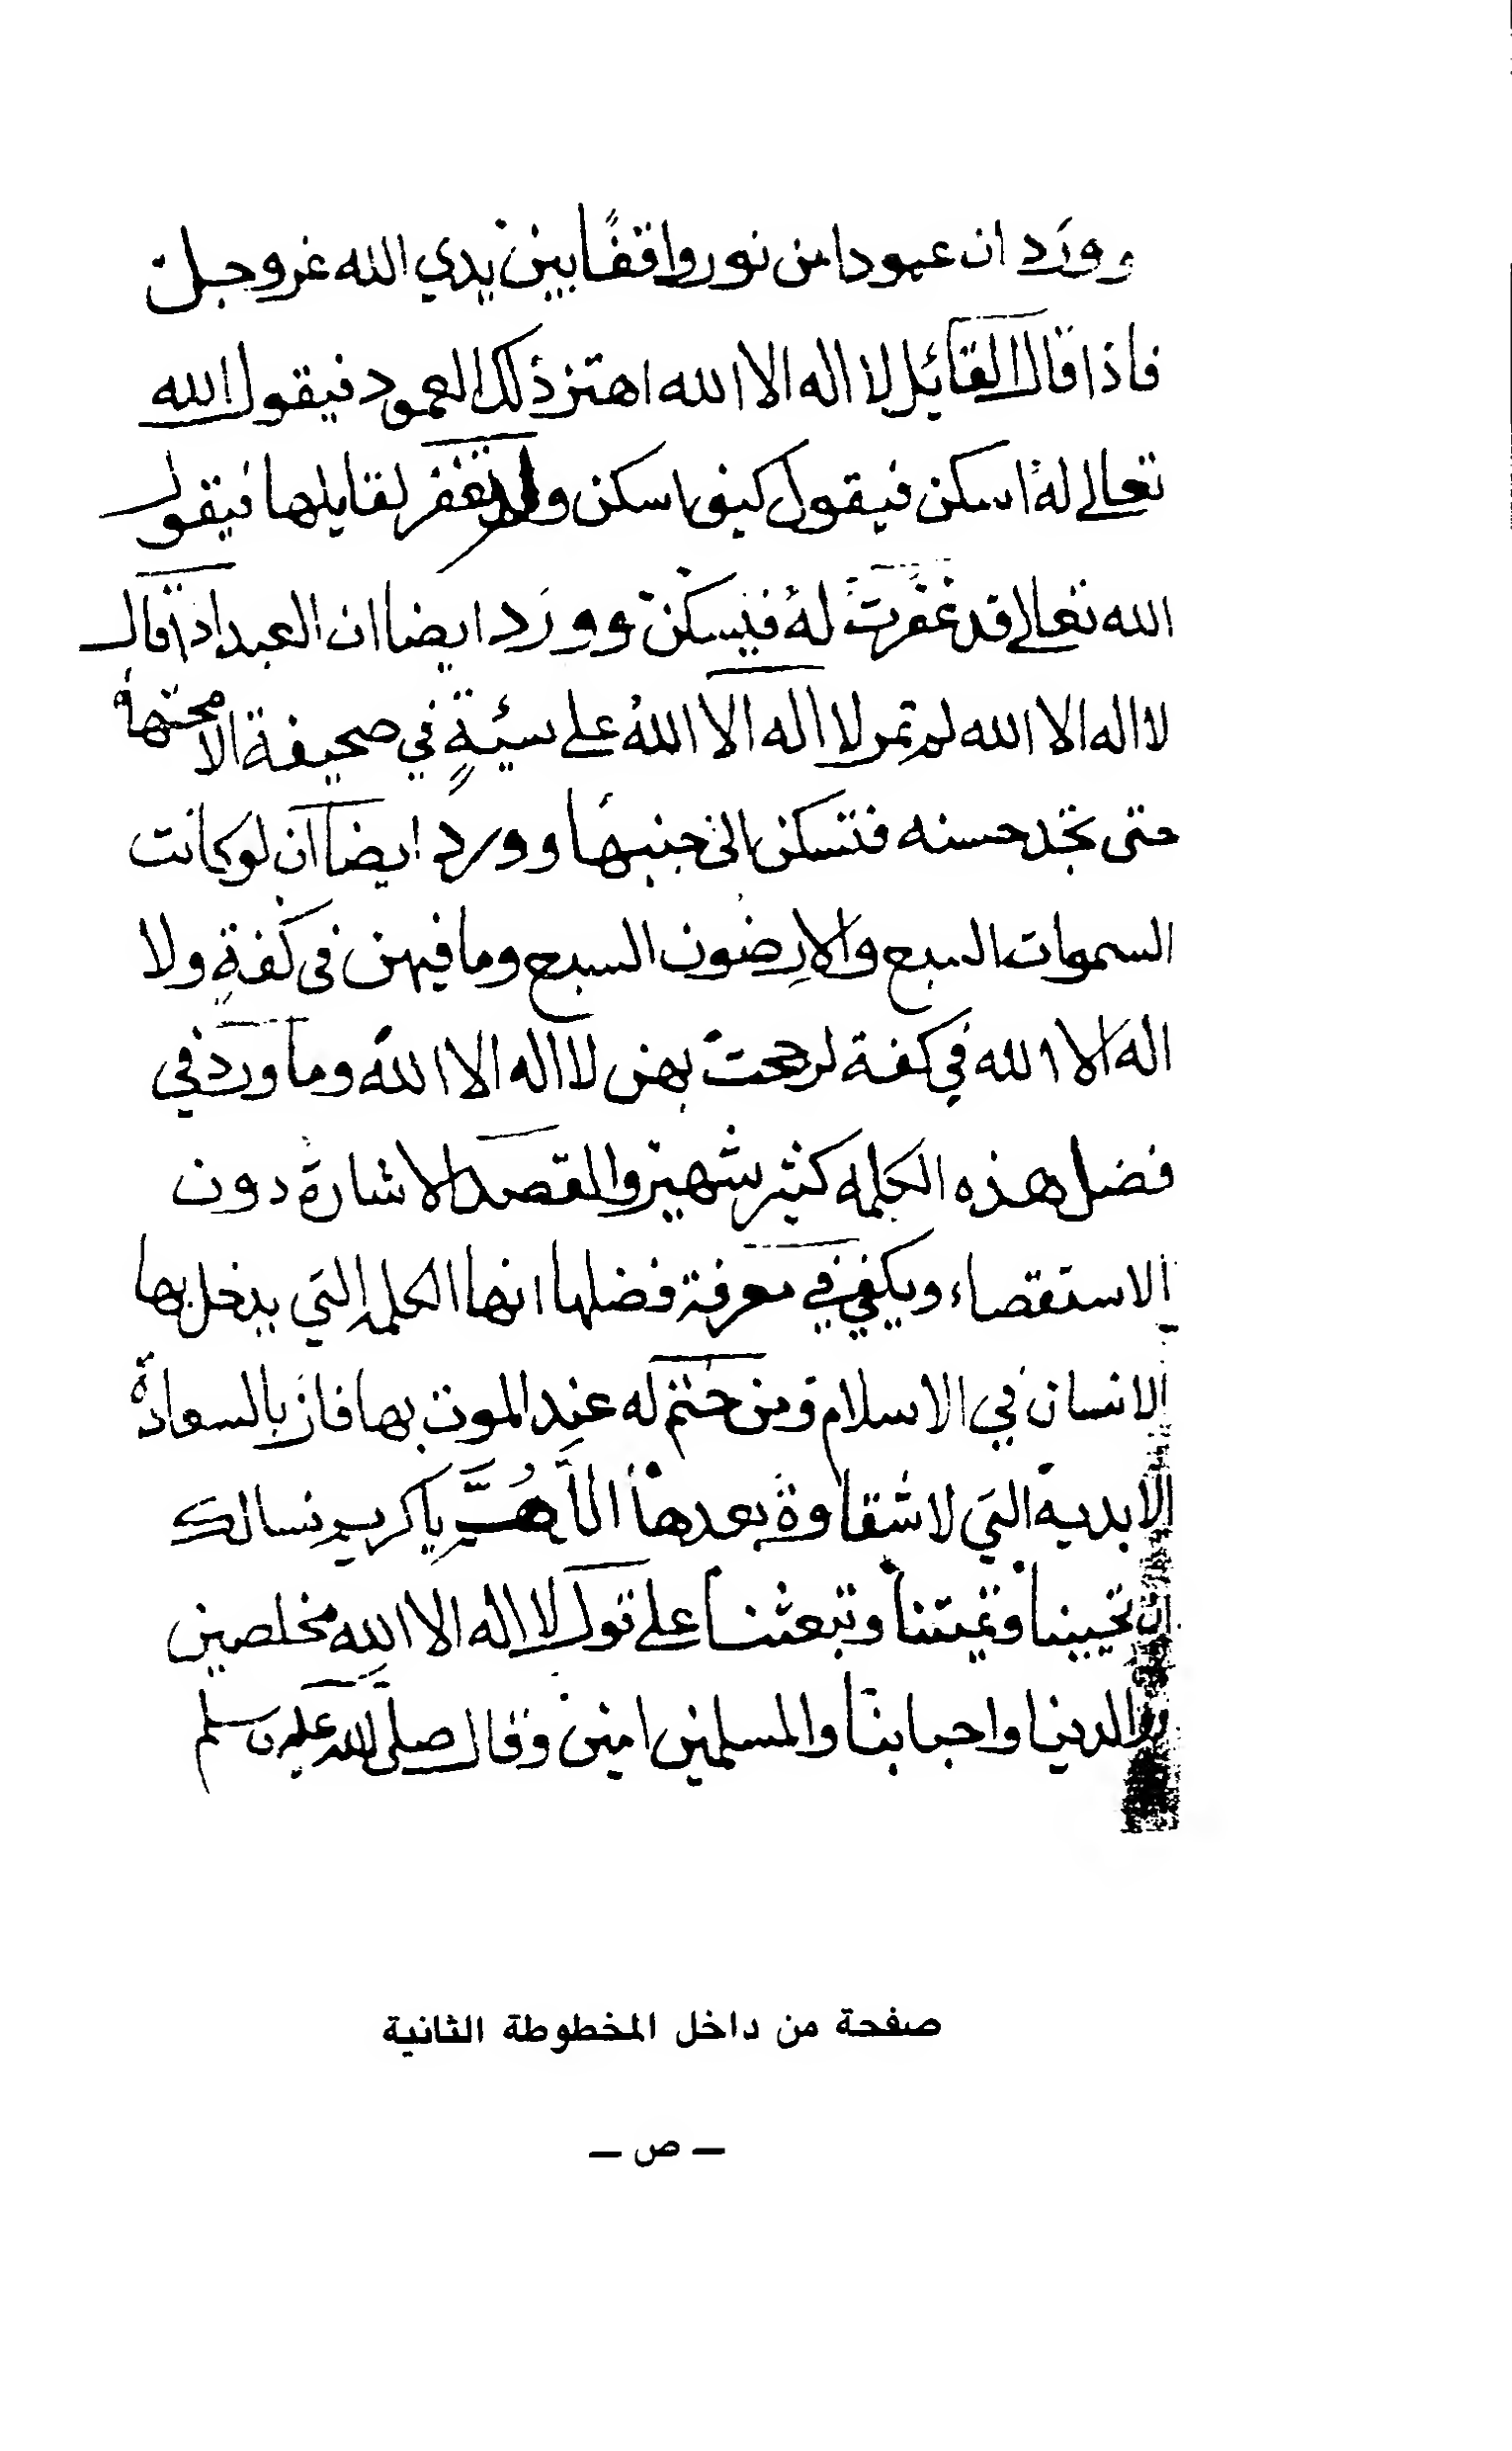 وورد ان عمودا من نور واقفًا بين يدي الله عز وجل
فاذا قال القائل لا اله الا الله اهتز ذلك العمود فيقول الله
تعالى له اسكن فيقول كيف اسكن ولم تغفر لقايلها فيقول
الله تعالى قد غفرت له فيسكن وورد ايضا ان العبد اذا قال
لا اله الا الله لم تمر لا اله الا الله على سيئةٍ في صحيفة الا محتها
حتى تجد حسنه فتسكن الى جنبها وورد ايضا ان لو كانت
السموات السبع والارضون السبع وما فيهن فى كفةٍ ولا
اله الا الله في كفة لرجحت بهن لا اله الا الله وما ورد في
فضل هذه الكلمه كثير شهير والقصد الاشارة دون
الاستقصاء ويكفي في معرفة فضلها انها الكلمه التي يدخل بها
الانسان في الاسلام ومن ختم له عند الموت بها فاز بالسعادة
الابدية التي لا شقاوة بعدها اللَّهُمَّ يا كريم نسالك
ان تحيينا وتميتنا وتبعثنا على قول لا اله الا الله مخلصين
ووالدينا واحبابنا والمسلمين امين وقال صلى الله عليه وسلم
صفحة من داخل المخطوطة الثانية
– ص –